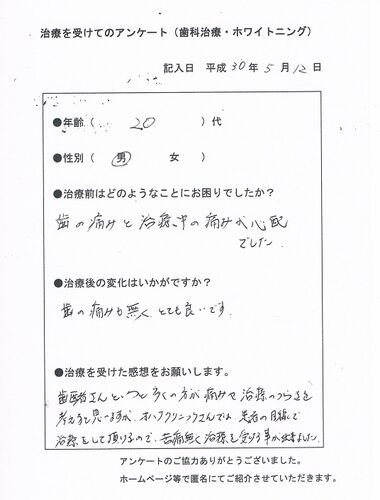 治療を受けてのアンケート（歯科治療・ホワイトニング）
記入日　平成 30 年 5 月 12 日
●年齢（　20　）代
●性別（　男　女　）
●治療前はどのようなことにお困りでしたか？
歯の痛みと治療中の痛みが心配
でした。
●治療後の変化はいかがですか？
歯の痛みも無く、とても良いです。
●治療を受けた感想をお願いします。
歯医者さんというと多くの方が痛みや治療のつらさを
考えると思いますが、オハナクリニックさんでは、患者の目線で
治療をして頂けるので、苦痛無く治療を受ける事が出来ました。
アンケートのご協力ありがとうございました。
ホームページ等で匿名にてご紹介させていただきます。